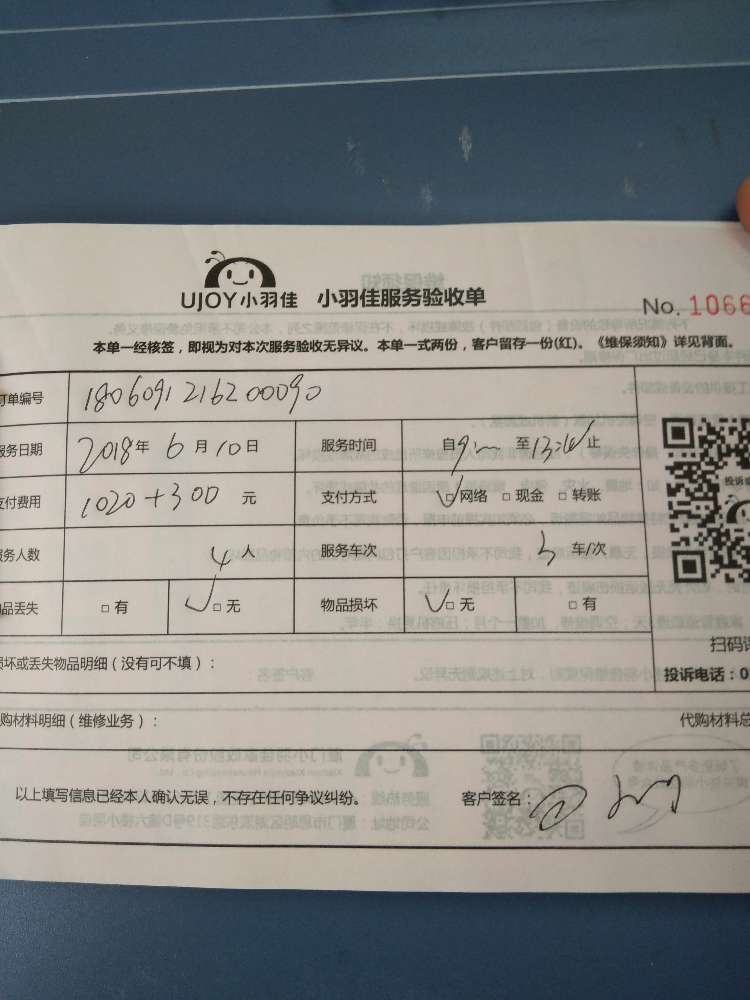 UJOY小羽佳 小羽佳服务验收单
No. 1066
本单一经核签，即视为对本次服务验收无异议。本单一式两份，客户留存一份(红)。《维保须知》详见背面。
订单编号 180609121620090
服务日期 2018年 6月10日 服务时间 自9 至13:止
支付费用 1020+300 元 支付方式 □网络 □现金 □转账
服务人数 4人 服务车次 车/次
物品丢失 □有 □无 物品损坏 □无 □有
损坏或丢失物品明细（没有可不填）：
扫码
投诉电话：0
代购材料明细（维修业务）： 代购材料总
以上填写信息已经本人确认无误，不存在任何争议纠纷。 客户签名：